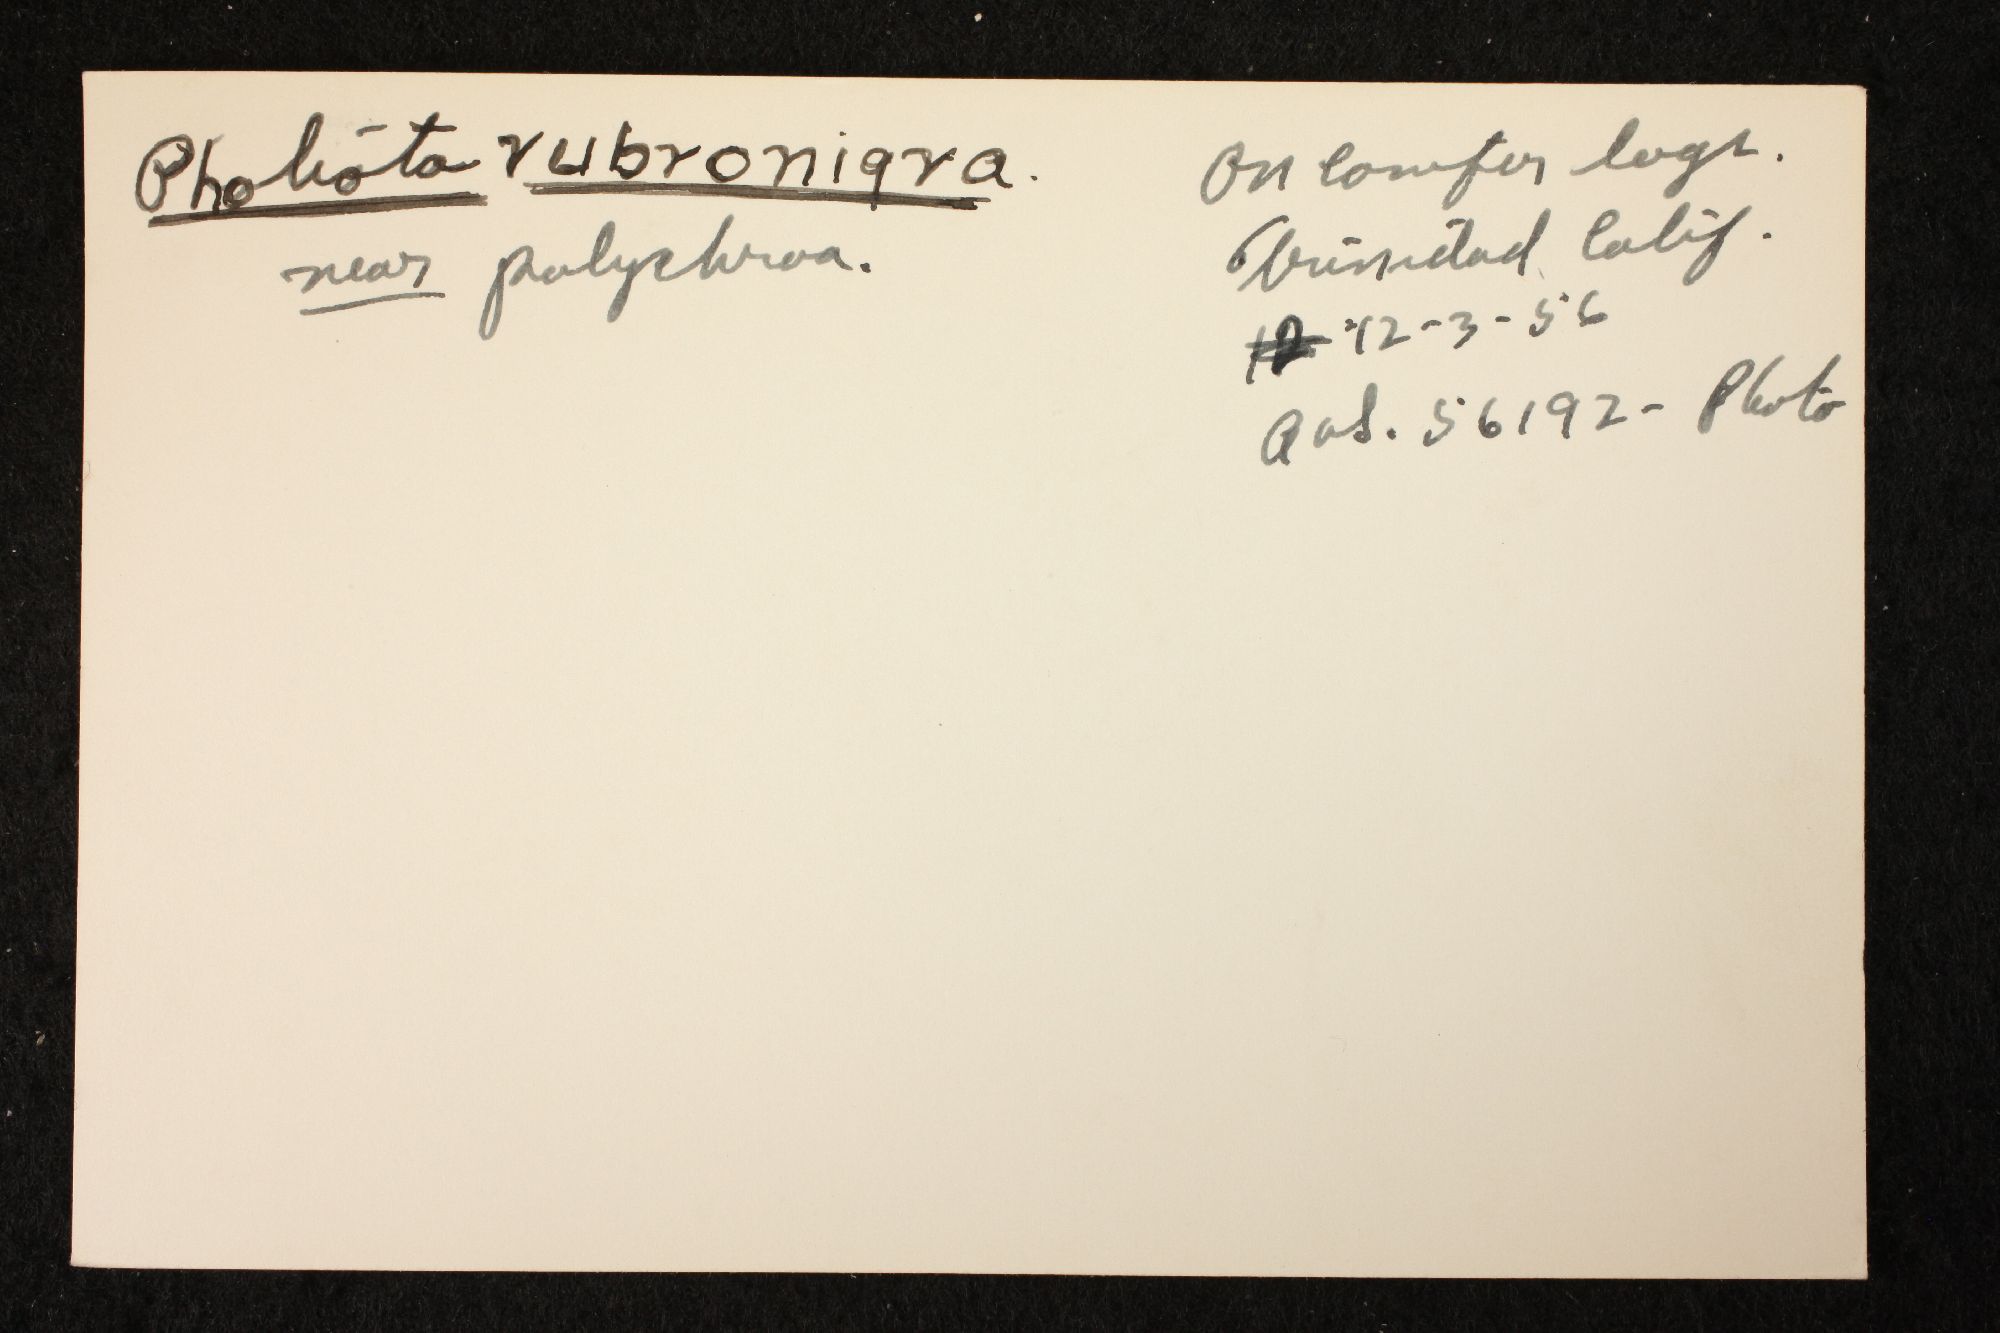 Pholiota rubronigra.
near polychroa.
On conifer logs.
Trinidad Calif.
12-3-56
56192 - Photo